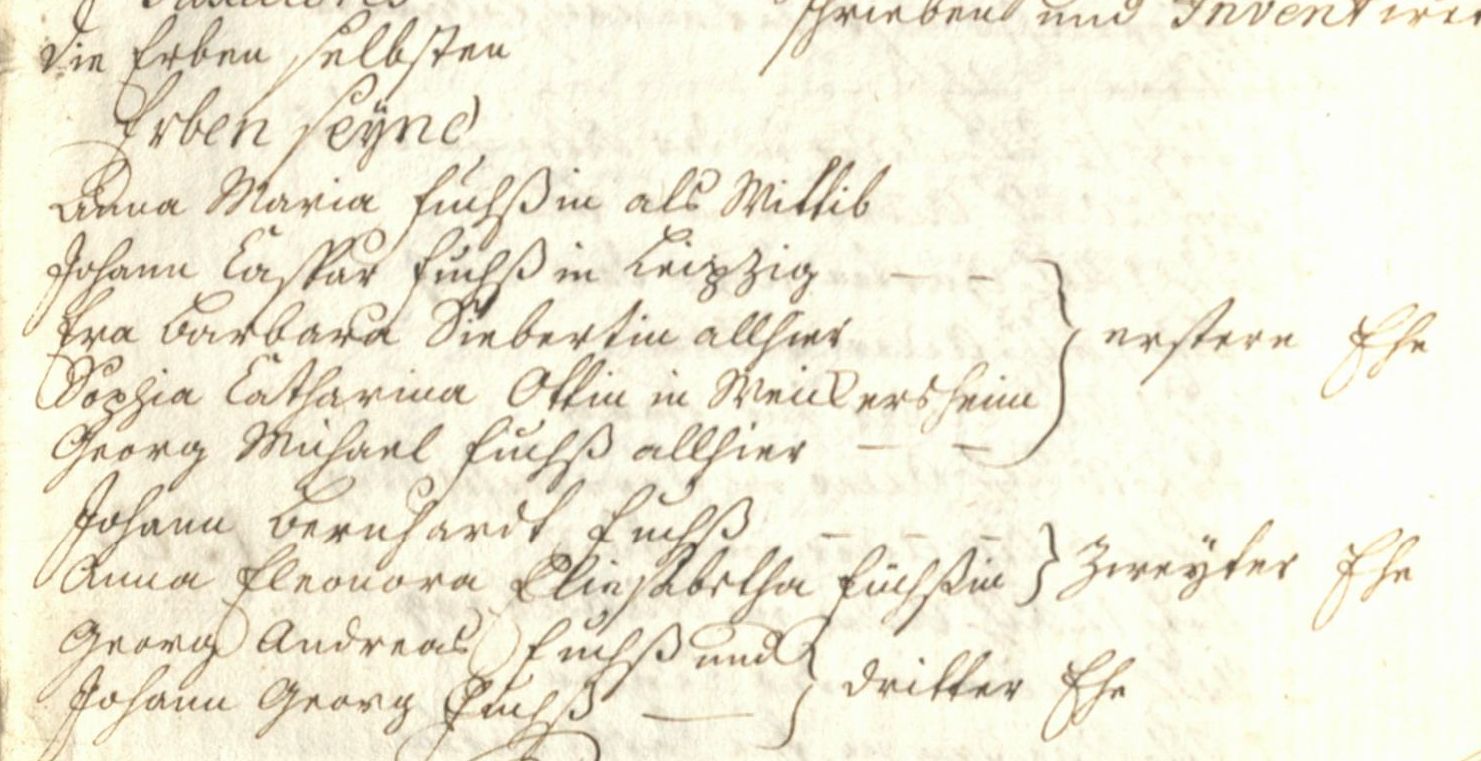 schrieben und Inventirt
die Erben selbsten
Erben seynd
Anna Maria Fuchßin als Wittib
Johann Caspar Fuchß in Leipzig — —
Eva Barbara Siebertin allhier
Sophia Catharina Ottin in Weickersheim } ersterer Ehe
Georg Michael Fuchß allhier — —
Johann Bernhardt Fuchß — — —
Anna Eleonora Eliesabetha Füchßin } Zweyter Ehe
Georg Andreas Fuchß und
Johann Georg Fuchß — } dritter Ehe